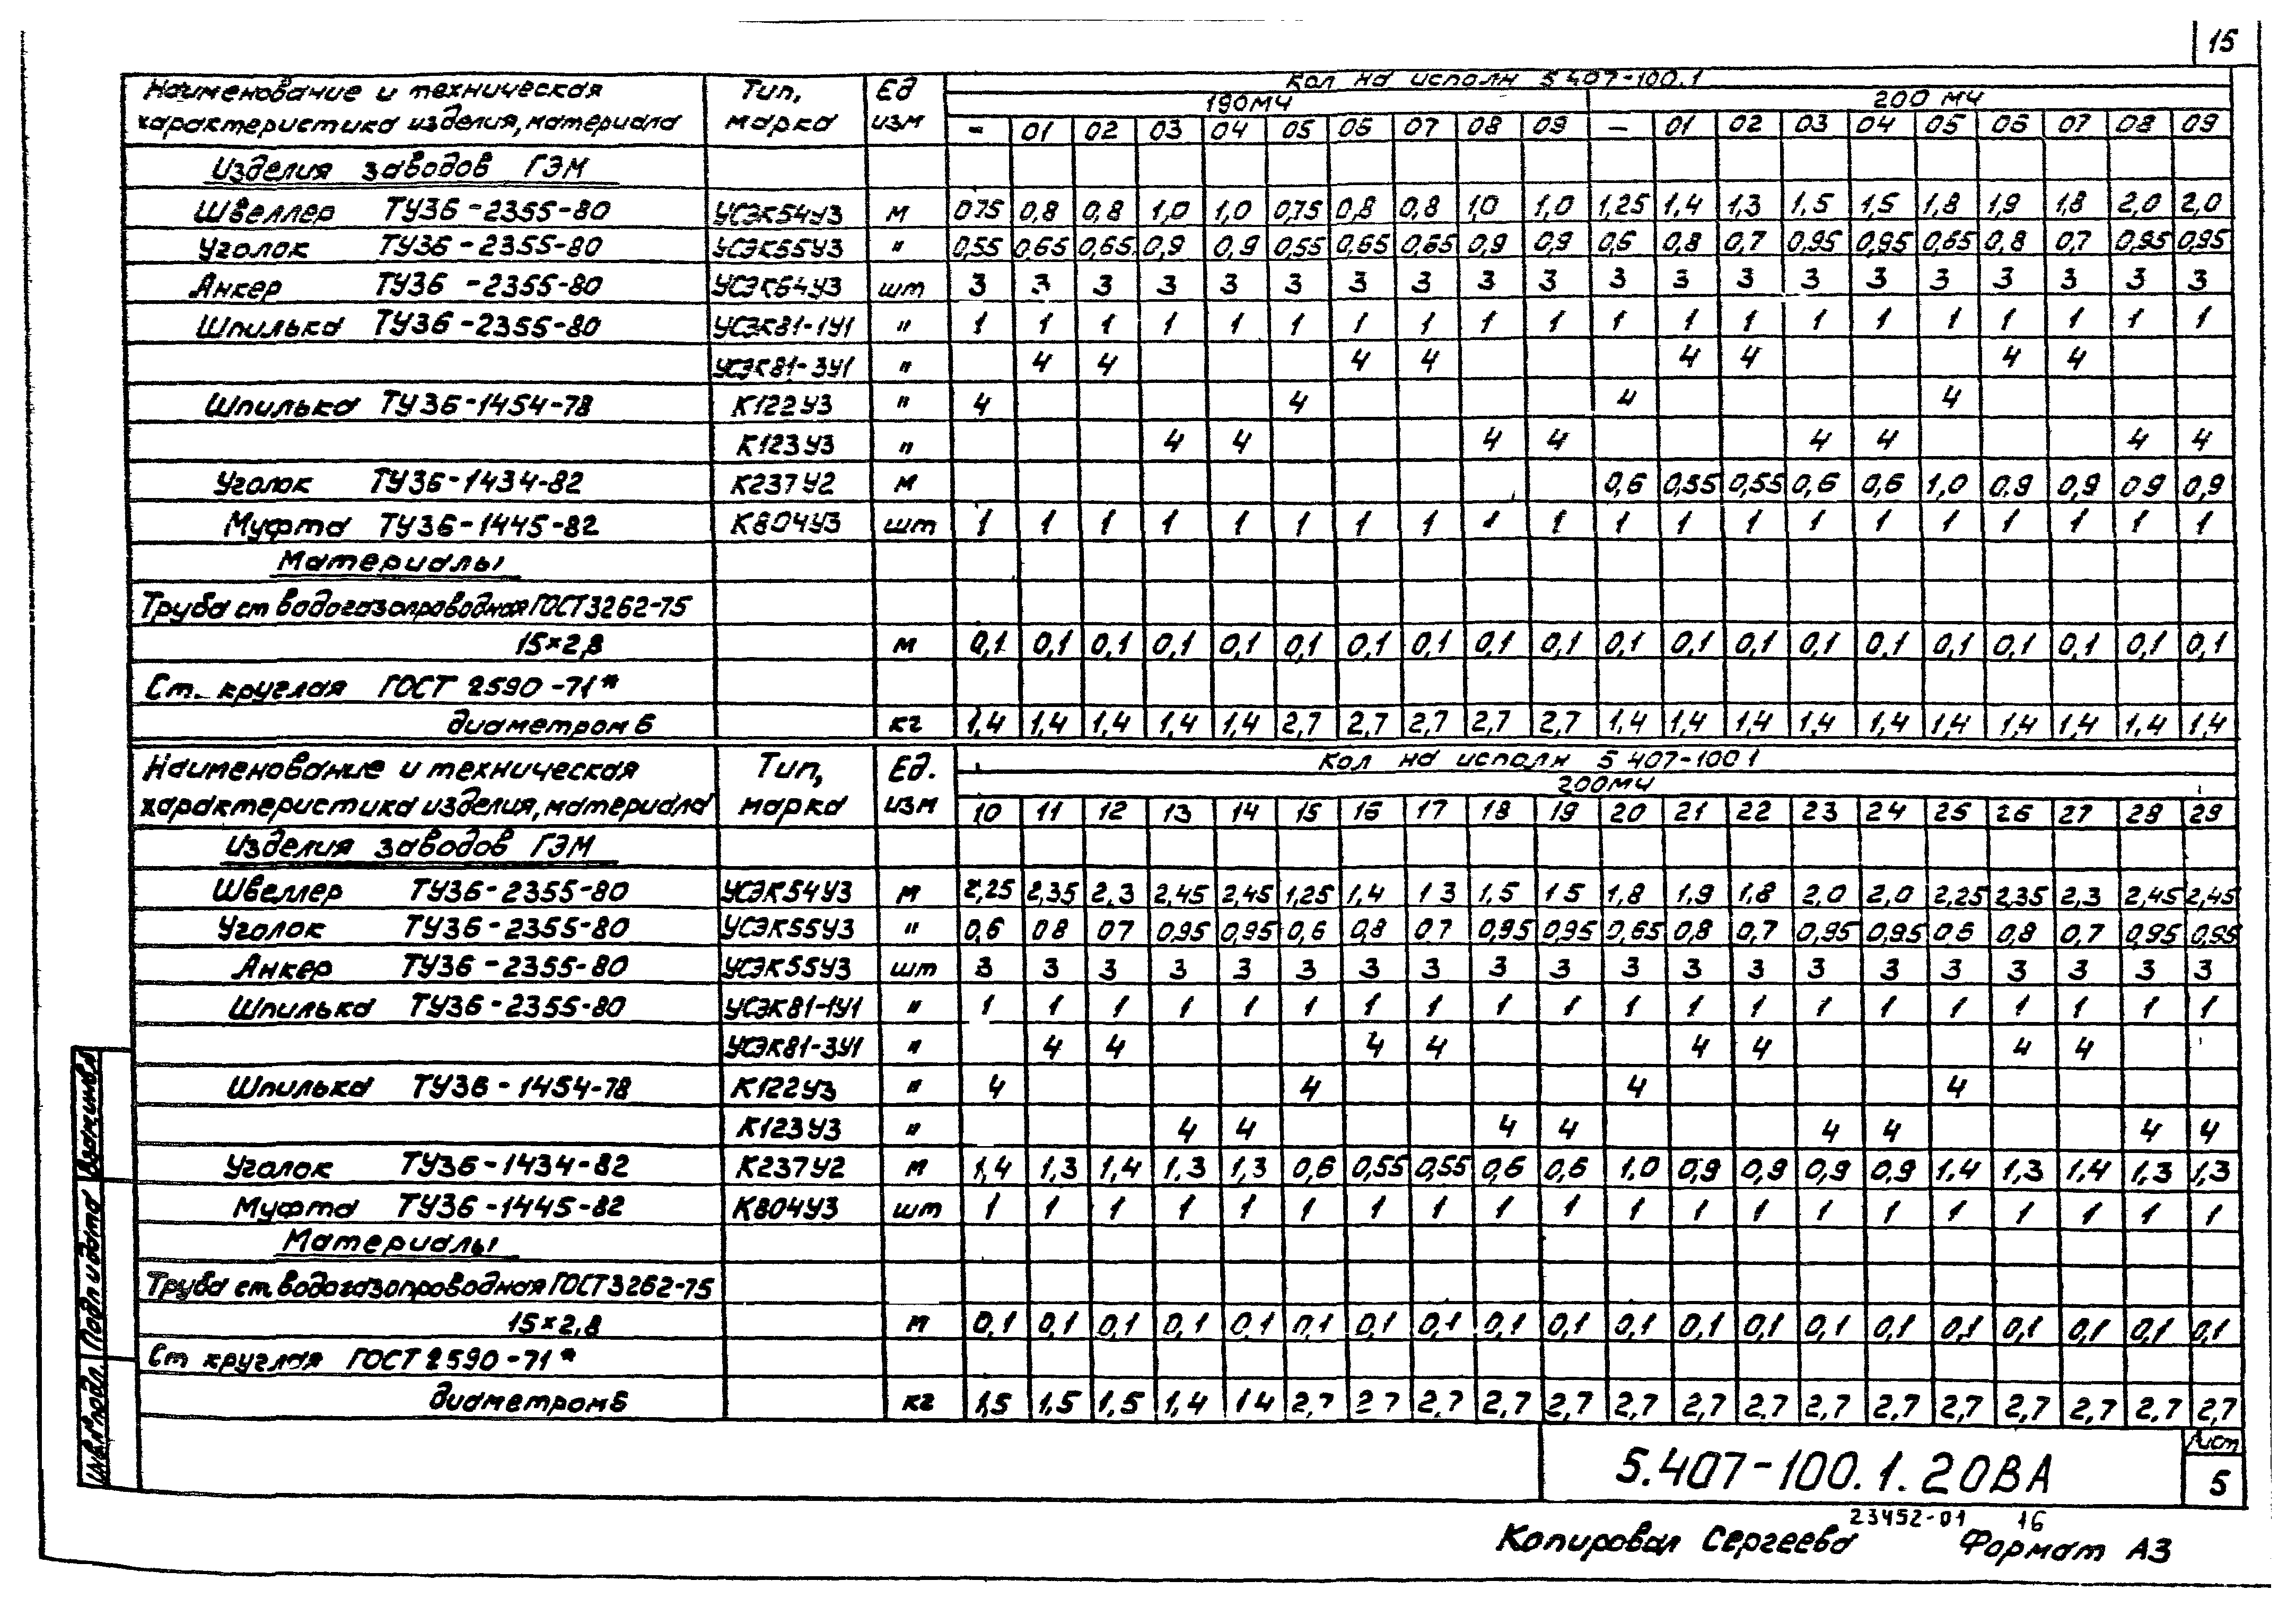 15
Наименование и техническая характеристика изделия, материала | Тип, марка | Ед изм | Кол на исполн 5 407-100.1
190МЧ | 200 МЧ
– 01 02 03 04 05 06 07 08 09 – 01 02 03 04 05 06 07 08 09
Изделия заводов ГЭМ
Швеллер ТУ36-2355-80 УСЭК54У3 м 0,75 0,8 0,8 1,0 1,0 0,75 0,8 0,8 1,0 1,0 1,25 1,4 1,3 1,5 1,5 1,8 1,9 1,8 2,0 2,0
Уголок ТУ36-2355-80 УСЭК55У3 " 0,55 0,65 0,65 0,9 0,9 0,55 0,65 0,65 0,9 0,9 0,6 0,8 0,7 0,95 0,95 0,65 0,8 0,7 0,95 0,95
Анкер ТУ36-2355-80 УСЭК64У3 шт 3 3 3 3 3 3 3 3 3 3 3 3 3 3 3 3 3 3 3 3
Шпилька ТУ36-2355-80 УСЭК81-1У1 " 1 1 1 1 1 1 1 1 1 1 1 1 1 1 1 1 1 1 1 1
УСЭК81-3У1 " 4 4 4 4 4 4 4 4
Шпилька ТУ36-1454-78 К122У3 " 4 4 4 4
К123У3 " 4 4 4 4 4 4 4 4
Уголок ТУ36-1434-82 К237У2 м 0,6 0,55 0,55 0,6 0,6 1,0 0,9 0,9 0,9 0,9
Муфта ТУ36-1445-82 К804У3 шт 1 1 1 1 1 1 1 1 1 1 1 1 1 1 1 1 1 1 1 1
Материалы
Труба ст водогазопроводная ГОСТ 3262-75
15×2,8 м 0,1 0,1 0,1 0,1 0,1 0,1 0,1 0,1 0,1 0,1 0,1 0,1 0,1 0,1 0,1 0,1 0,1 0,1 0,1 0,1
Ст. круглая ГОСТ 2590-71*
диаметром 6 кг 1,4 1,4 1,4 1,4 1,4 2,7 2,7 2,7 2,7 2,7 1,4 1,4 1,4 1,4 1,4 1,4 1,4 1,4 1,4 1,4
Наименование и техническая характеристика изделия, материала | Тип, марка | Ед. изм | Кол на исполн 5 407-100 1
200МЧ
10 11 12 13 14 15 16 17 18 19 20 21 22 23 24 25 26 27 28 29
Изделия заводов ГЭМ
Швеллер ТУ36-2355-80 УСЭК54У3 м 2,25 2,35 2,3 2,45 2,45 1,25 1,4 1 3 1,5 1 5 1,8 1,9 1,8 2,0 2,0 2,25 2,35 2,3 2,45 2,45
Уголок ТУ36-2355-80 УСЭК55У3 " 0,6 0 8 0 7 0,95 0,95 0,6 0,8 0,7 0,95 0,95 0,65 0,8 0,7 0,95 0,95 0,6 0,8 0,7 0,95 0,95
Анкер ТУ36-2355-80 УСЭК55У3 шт 3 3 3 3 3 3 3 3 3 3 3 3 3 3 3 3 3 3 3 3
Шпилька ТУ36-2355-80 УСЭК81-1У1 " 1 1 1 1 1 1 1 1 1 1 1 1 1 1 1 1 1 1 1 1
УСЭК81-3У1 " 4 4 4 4 4 4 4 4
Шпилька ТУ36-1454-78 К122У3 " 4 4 4 4
К123У3 " 4 4 4 4 4 4 4 4
Уголок ТУ36-1434-82 К237У2 м 1,4 1,3 1,4 1,3 1,3 0,6 0,55 0,55 0,6 0,6 1,0 0,9 0,9 0,9 0,9 1,4 1,3 1,4 1,3 1,3
Муфта ТУ36-1445-82 К804У3 шт 1 1 1 1 1 1 1 1 1 1 1 1 1 1 1 1 1 1 1 1
Материалы
Труба ст. водогазопроводная ГОСТ 3262-75
15×2,8 м 0,1 0,1 0,1 0,1 0,1 0,1 0,1 0,1 0,1 0,1 0,1 0,1 0,1 0,1 0,1 0,1 0,1 0,1 0,1 0,1
Ст круглая ГОСТ 2590-71*
диаметром 6 кг 1,5 1,5 1,5 1,4 1 4 2,7 2 7 2,7 2,7 2,7 2,7 2,7 2,7 2,7 2,7 2,7 2,7 2,7 2,7 2,7
Инв.№подл. Подп и дата Взам инв№
5.407-100.1.20ВА
Лист
5
23452-01 16
Копировал Сергеева Формат А3